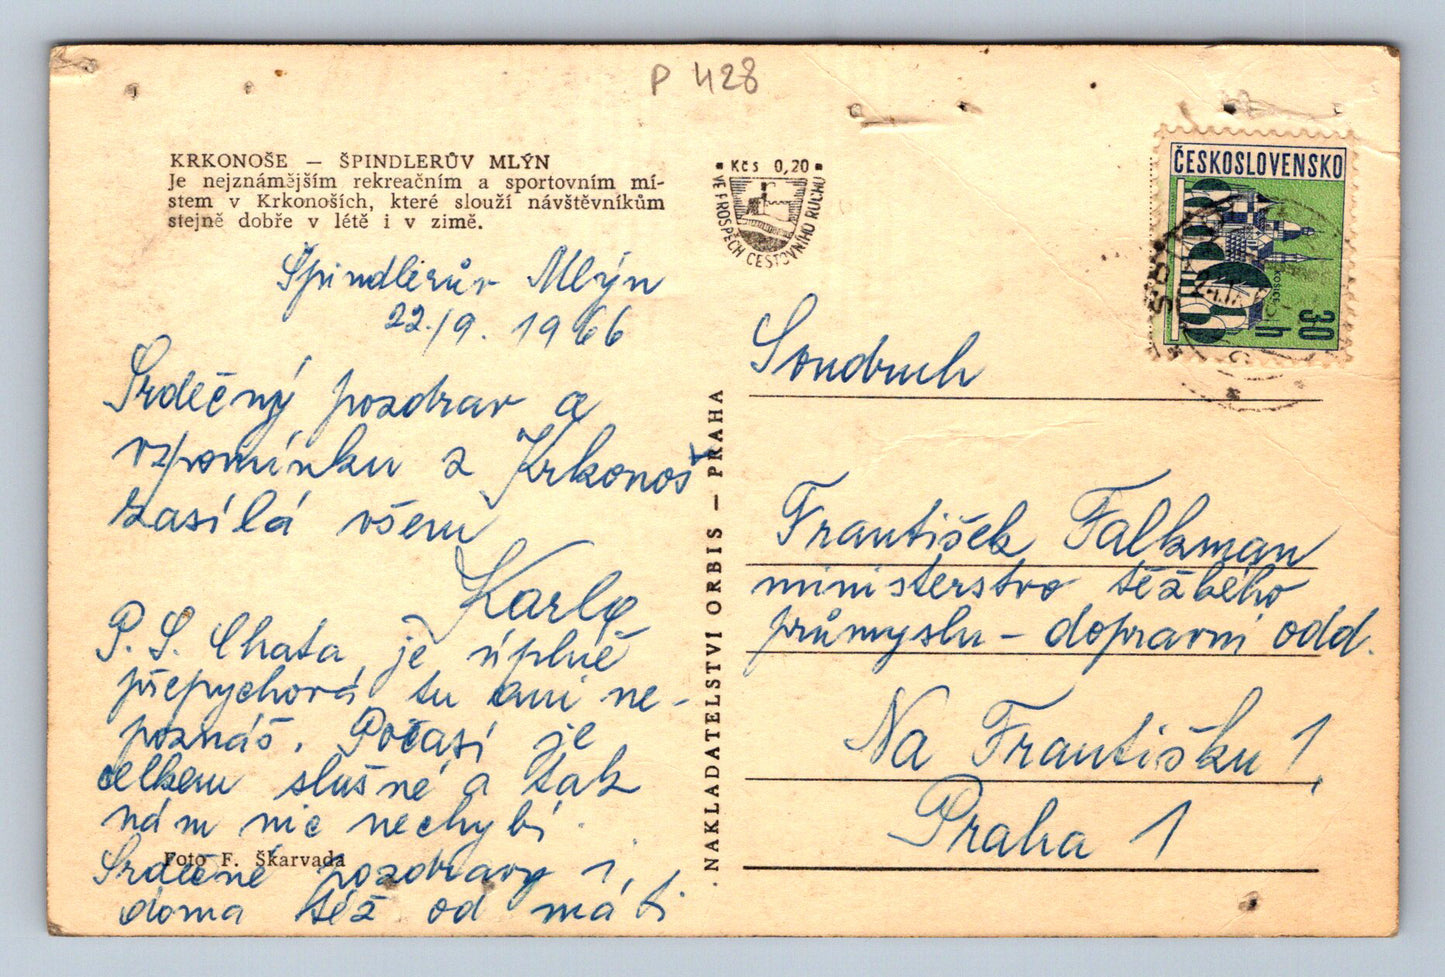 P 428
KRKONOŠE — ŠPINDLERŮV MLÝN
Je nejznámějším rekreačním a sportovním mí-
stem v Krkonoších, které slouží návštěvníkům
stejně dobře v létě i v zimě.
Kčs 0,20
VE PROSPĚCH CESTOVNÍHO RUCHU
ČESKOSLOVENSKO
KOŠICE
30
h
Špindlerův Mlýn
22./9. 1966
Srdečný pozdrav a
vzpomínku z Krkonoš
zasílá všem
Karla
P.S. Chata je úplně
přepychová tu ani ne-
poznáš. Počasí je
celkem slušné a tak
nám nic nechybí.
Srdečné pozdravy i
doma též od máti
Foto F. Škarvada
NAKLADATELSTVÍ ORBIS — PRAHA
Soudruh
František Falkman
ministerstvo těžkého
průmyslu - dopravní odd.
Na Františku 1,
Praha 1